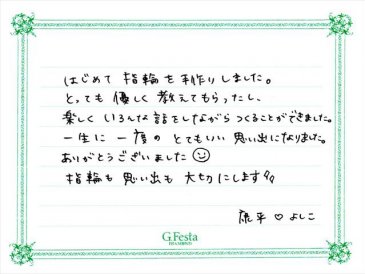 はじめて 指輪を手作りしました。
とっても 優しく 教えてもらったし、
楽しく いろんな 話をしながら つくることができました。
一生に 一度の とてもいい 思い出になりました。
ありがとうございました
指輪も 思い出も 大切にします!!
康平 ♡ よしこ
G.Festa